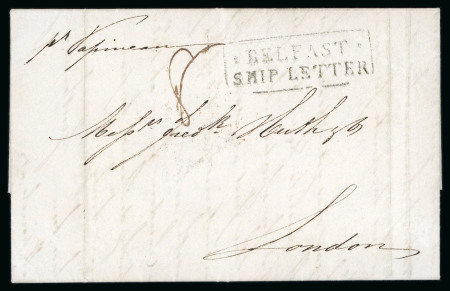 pr Papineau
BELFAST
SHIP LETTER
8
Messrs Fredk Huth & Co
London